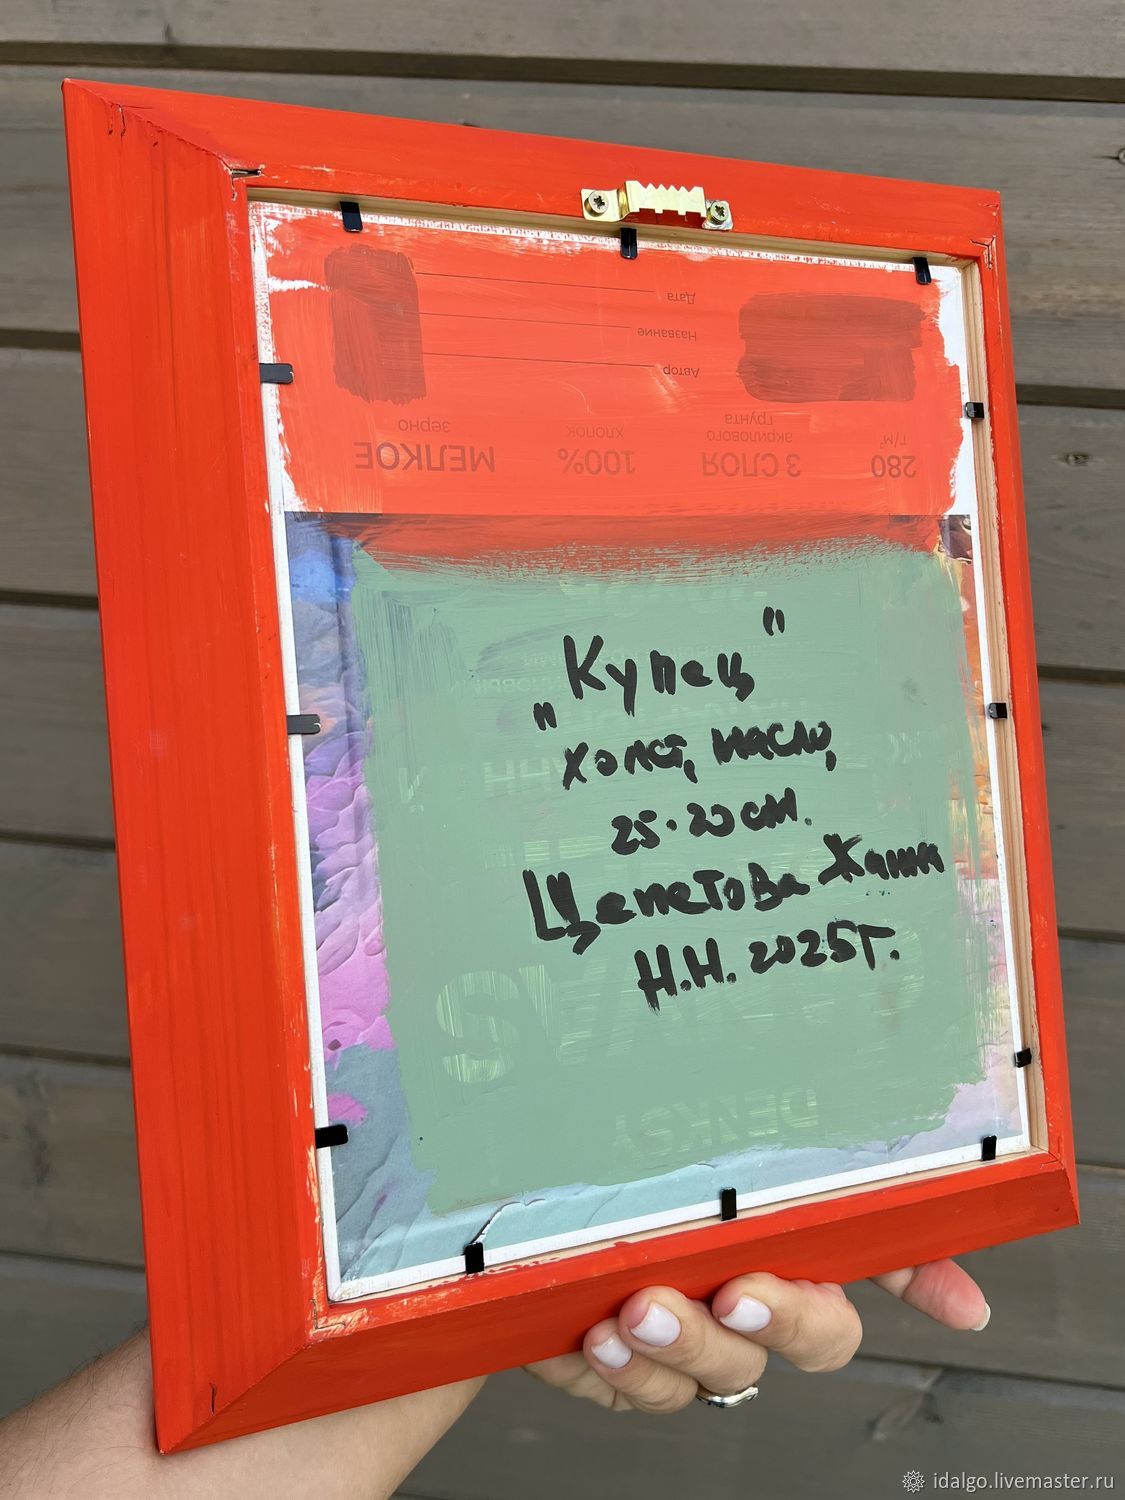 Дата
Название
Автор
280 г/м² 3 СЛОЯ акрилового грунта 100% хлопок МЕЛКОЕ зерно
"Купец"
холст, масло,
25·20 см.
Щепетова Жанна
Н.Н. 2025г.
idalgo.livemaster.ru